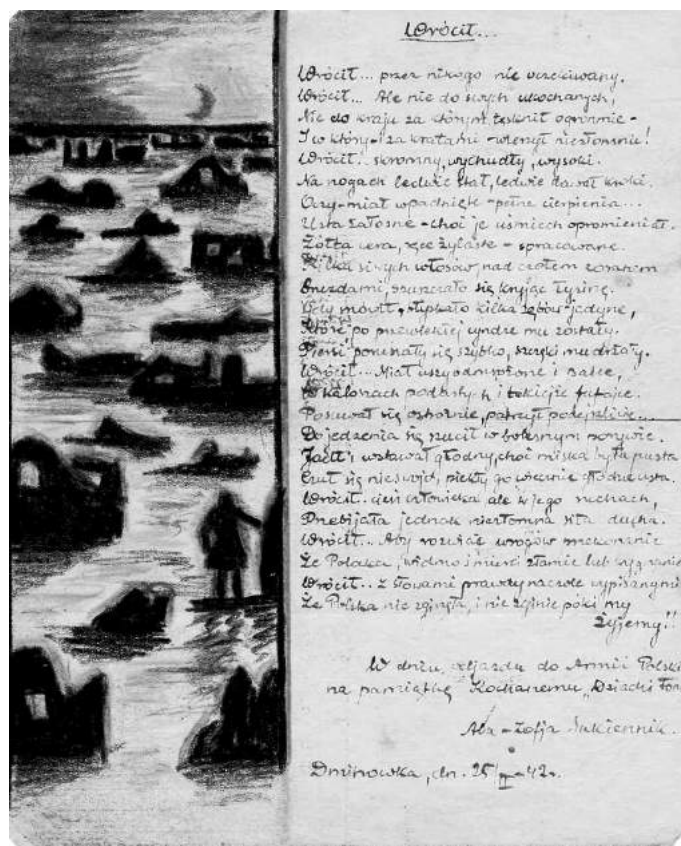 Wrócił...
Wrócił... przez nikogo nie oczekiwany.
Wrócił... Ale nie do swych ukochanych,
Nie do kraju za którym tęsknił ogromnie -
I w który - i za kratami - wierzył niezłomnie!
Wrócił.. skromny, wychudły, wysoki.
Na nogach ledwie stał, ledwie dawał kroki.
Oczy - miał wpadnięte - pełne cierpienia...
Usta żałosne - choć je uśmiech opromieniał.
Żółta cera, ręce żylaste - spracowane.
Kilka siwych włosów, nad czołem zoranem
się kryjąc łysinę.
Gdy mówił, kilka zębów jedyne,
Które po przewlekłej cyndze mu zostały.
Piersi poruszały się szybko, szczęki mu drżały.
Wrócił... Miał uszy odmrożone i palce,
W kaloszach podbitych i tokiejże fufajce.
Posuwał się ostrożnie, patrząc podejrzliwie...
Do jedzenia się rzucił w bolesnym porywie.
Jadł i wstawał głodny, choć miska była pusta
Czuł się nieswojo, piekły go wiecznie głodne usta.
Wrócił.. cień człowieka ale w jego ruchach,
Przebijała jednak niezłomna siła ducha.
Wrócił... Aby rozwiać wrogów mniemanie
Że Polaka, widmo śmierci złamie lub
Wrócił.. z słowami prawdy na czole wypisanymi
Że Polska nie zginęła, i nie zginie póki my
żyjemy!!
W dniu odjazdu do Armii Polski
na pamiątkę Kochanemu "Dziadzi
Ala - Zofja Sukiennik.
dn. 25/II - 42r.